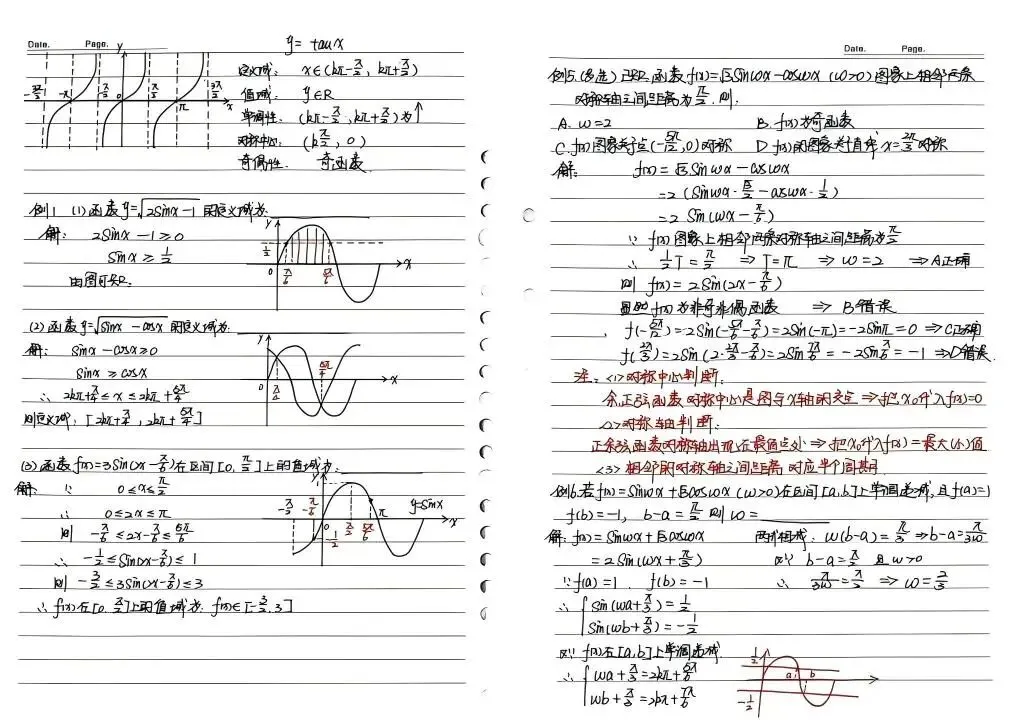 Date. Page.
y = tanx
定义域: x∈(kπ-π/2, kπ+π/2)
值域: y∈R
单调性: (kπ-π/2, kπ+π/2)为↑
对称中心: (kπ/2, 0)
奇偶性: 奇函数
-3π/2 -π -π/2 0 π/2 π 3π/2 x
y
例1 (1)函数y=√(2sinx-1)的定义域为
解: 2sinx-1≥0
sinx≥1/2
由图可知
y 1/2 0 π/6 5π/6 x
(2)函数y=√(sinx-cosx)的定义域为
解: sinx-cosx≥0
sinx≥cosx
∴ 2kπ+π/4≤x≤2kπ+5π/4
则定义域: [2kπ+π/4, 2kπ+5π/4]
y 0 π/4 5π/4 x
(3)函数f(x)=3sin(2x-π/6)在区间[0,π/2]上的值域为:
解: ∵ 0≤x≤π/2
∴ 0≤2x≤π
则 -π/6≤2x-π/6≤5π/6
∴ -1/2≤sin(2x-π/6)≤1
则 -3/2≤3sin(2x-π/6)≤3
∴ f(x)在[0,π/2]上的值域为: f(x)∈[-3/2,3]
y -π/2 -π/6 0 -1/2 π/2 5π/6 π y=sinx x
Date. Page.
例5.(多选)已知函数f(x)=√3sinωx-cosωx (ω>0)图象上相邻两条
对称轴之间距离为π/2,则:
A. ω=2 B. f(x)为奇函数
C. f(x)图象关于点(-5π/12,0)对称 D. f(x)的图象关于直线x=2π/3对称
解: f(x)=√3sinωx-cosωx
=2(sinωx·√3/2-cosωx·1/2)
=2sin(ωx-π/6)
∵ f(x)图象上相邻两条对称轴之间距离为π/2
∴ 1/2T=π/2 ⇒T=π ⇒ω=2 ⇒A正确
则 f(x)=2sin(2x-π/6)
显然f(x)为非奇非偶函数 ⇒ B错误
f(-5π/12)=2sin(-5π/6-π/6)=2sin(-π)=-2sinπ=0 ⇒C正确
f(2π/3)=2sin(2·2π/3-π/6)=2sin7π/6=-2sinπ/6=-1 ⇒D错误
注: <1>对称中心判断:
余、正弦函数对称中心是图与x轴的交点⇒把x0代入f(x)=0
<2>对称轴判断:
正余弦函数对称轴出现在最值点处⇒把x0代入f(x)=最大(小)值
<3>相邻的对称轴之间距离,对应半个周期
例6.若f(x)=sinωx+√3cosωx (ω>0)在区间[a,b]上单调递减,且f(a)=1
f(b)=-1, b-a=π/2 则ω=
解: f(x)=sinωx+√3cosωx 两个相减: ω(b-a)=π/3 ⇒b-a=π/3ω
=2sin(ωx+π/3) 又∵ b-a=π/2 且ω>0
∵f(a)=1 f(b)=-1 ∴ π/3ω=π/2 ⇒ω=2/3
∴ {sin(ωa+π/3)=1/2
sin(ωb+π/3)=-1/2
又∵f(x)在[a,b]上单调递减
∴ {ωa+π/3=2kπ+5π/6
ωb+π/3=2kπ+7π/6
1/2 a b -1/2